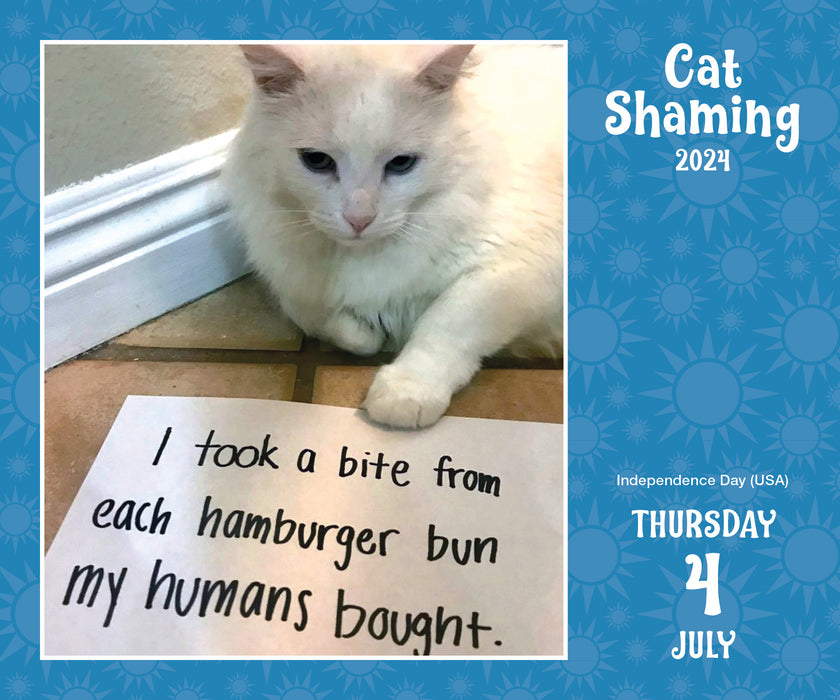 I took a bite from
each hamburger bun
my humans bought.
Cat
Shaming
2024
Independence Day (USA)
THURSDAY
4
JULY